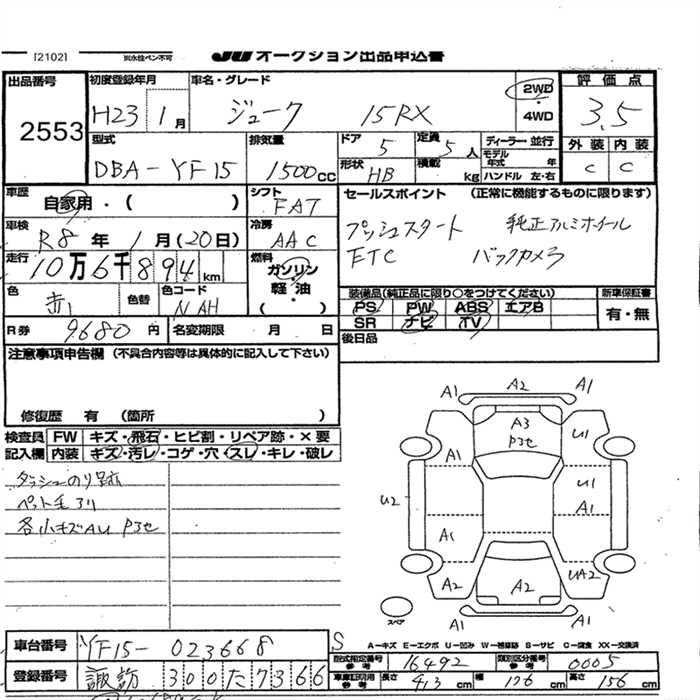 [2102]
JU オークション出品申込書
出品番号 2553
初度登録年月 H23 1月
車名・グレード ジューク 15RX
2WD・4WD
評価点 3.5
外装 C 内装 C
型式 DBA-YF15
排気量 1500cc
ドア 5 定員 5人
形状 HB 積載 kg
ディーラー・並行
モデル年式 年
ハンドル 左・右
車歴 自家用・( )
シフト FAT
車検 R8年 1月(20日)
冷房 AAC
走行 10万6千894km
燃料 ガソリン・軽・油 ( )
色 赤 色替
色コード NAH
R券 9680円 名変期限 月 日
セールスポイント (正常に機能するものに限ります)
プッシュスタート 純正アルミホイール
ETC バックカメラ
装備品(純正品に限り○をつけてください) 新車保証書
PS PW ABS エアB 有・無
SR ナビ TV
後日品
注意事項申告欄 (不具合内容等は具体的に記入して下さい)
修復歴 有 (箇所 )
検査員記入欄
FW キズ・飛石・ヒビ割・リペア跡・×要
内装 キズ・汚レ・コゲ・穴・スレ・キレ・破レ
ダッシュのり跡
ペット毛アリ
各小キズAU P3セ
A1 A2 A1
A3 P3セ
A1 U1
U2 U1 A1
A1
A2 A2 UA2
A1 A1
スペア
車台番号 YF15-023668 S
登録番号 諏訪 300 た 7366
A-キズ E-エクボ U-凹み W-補修跡 S-サビ C-腐食 XX-交換済
型式指定番号 参考 16492 類別区分番号 参考 0005
車庫証明用 参考 長さ 413cm 幅 176cm 高さ 156cm